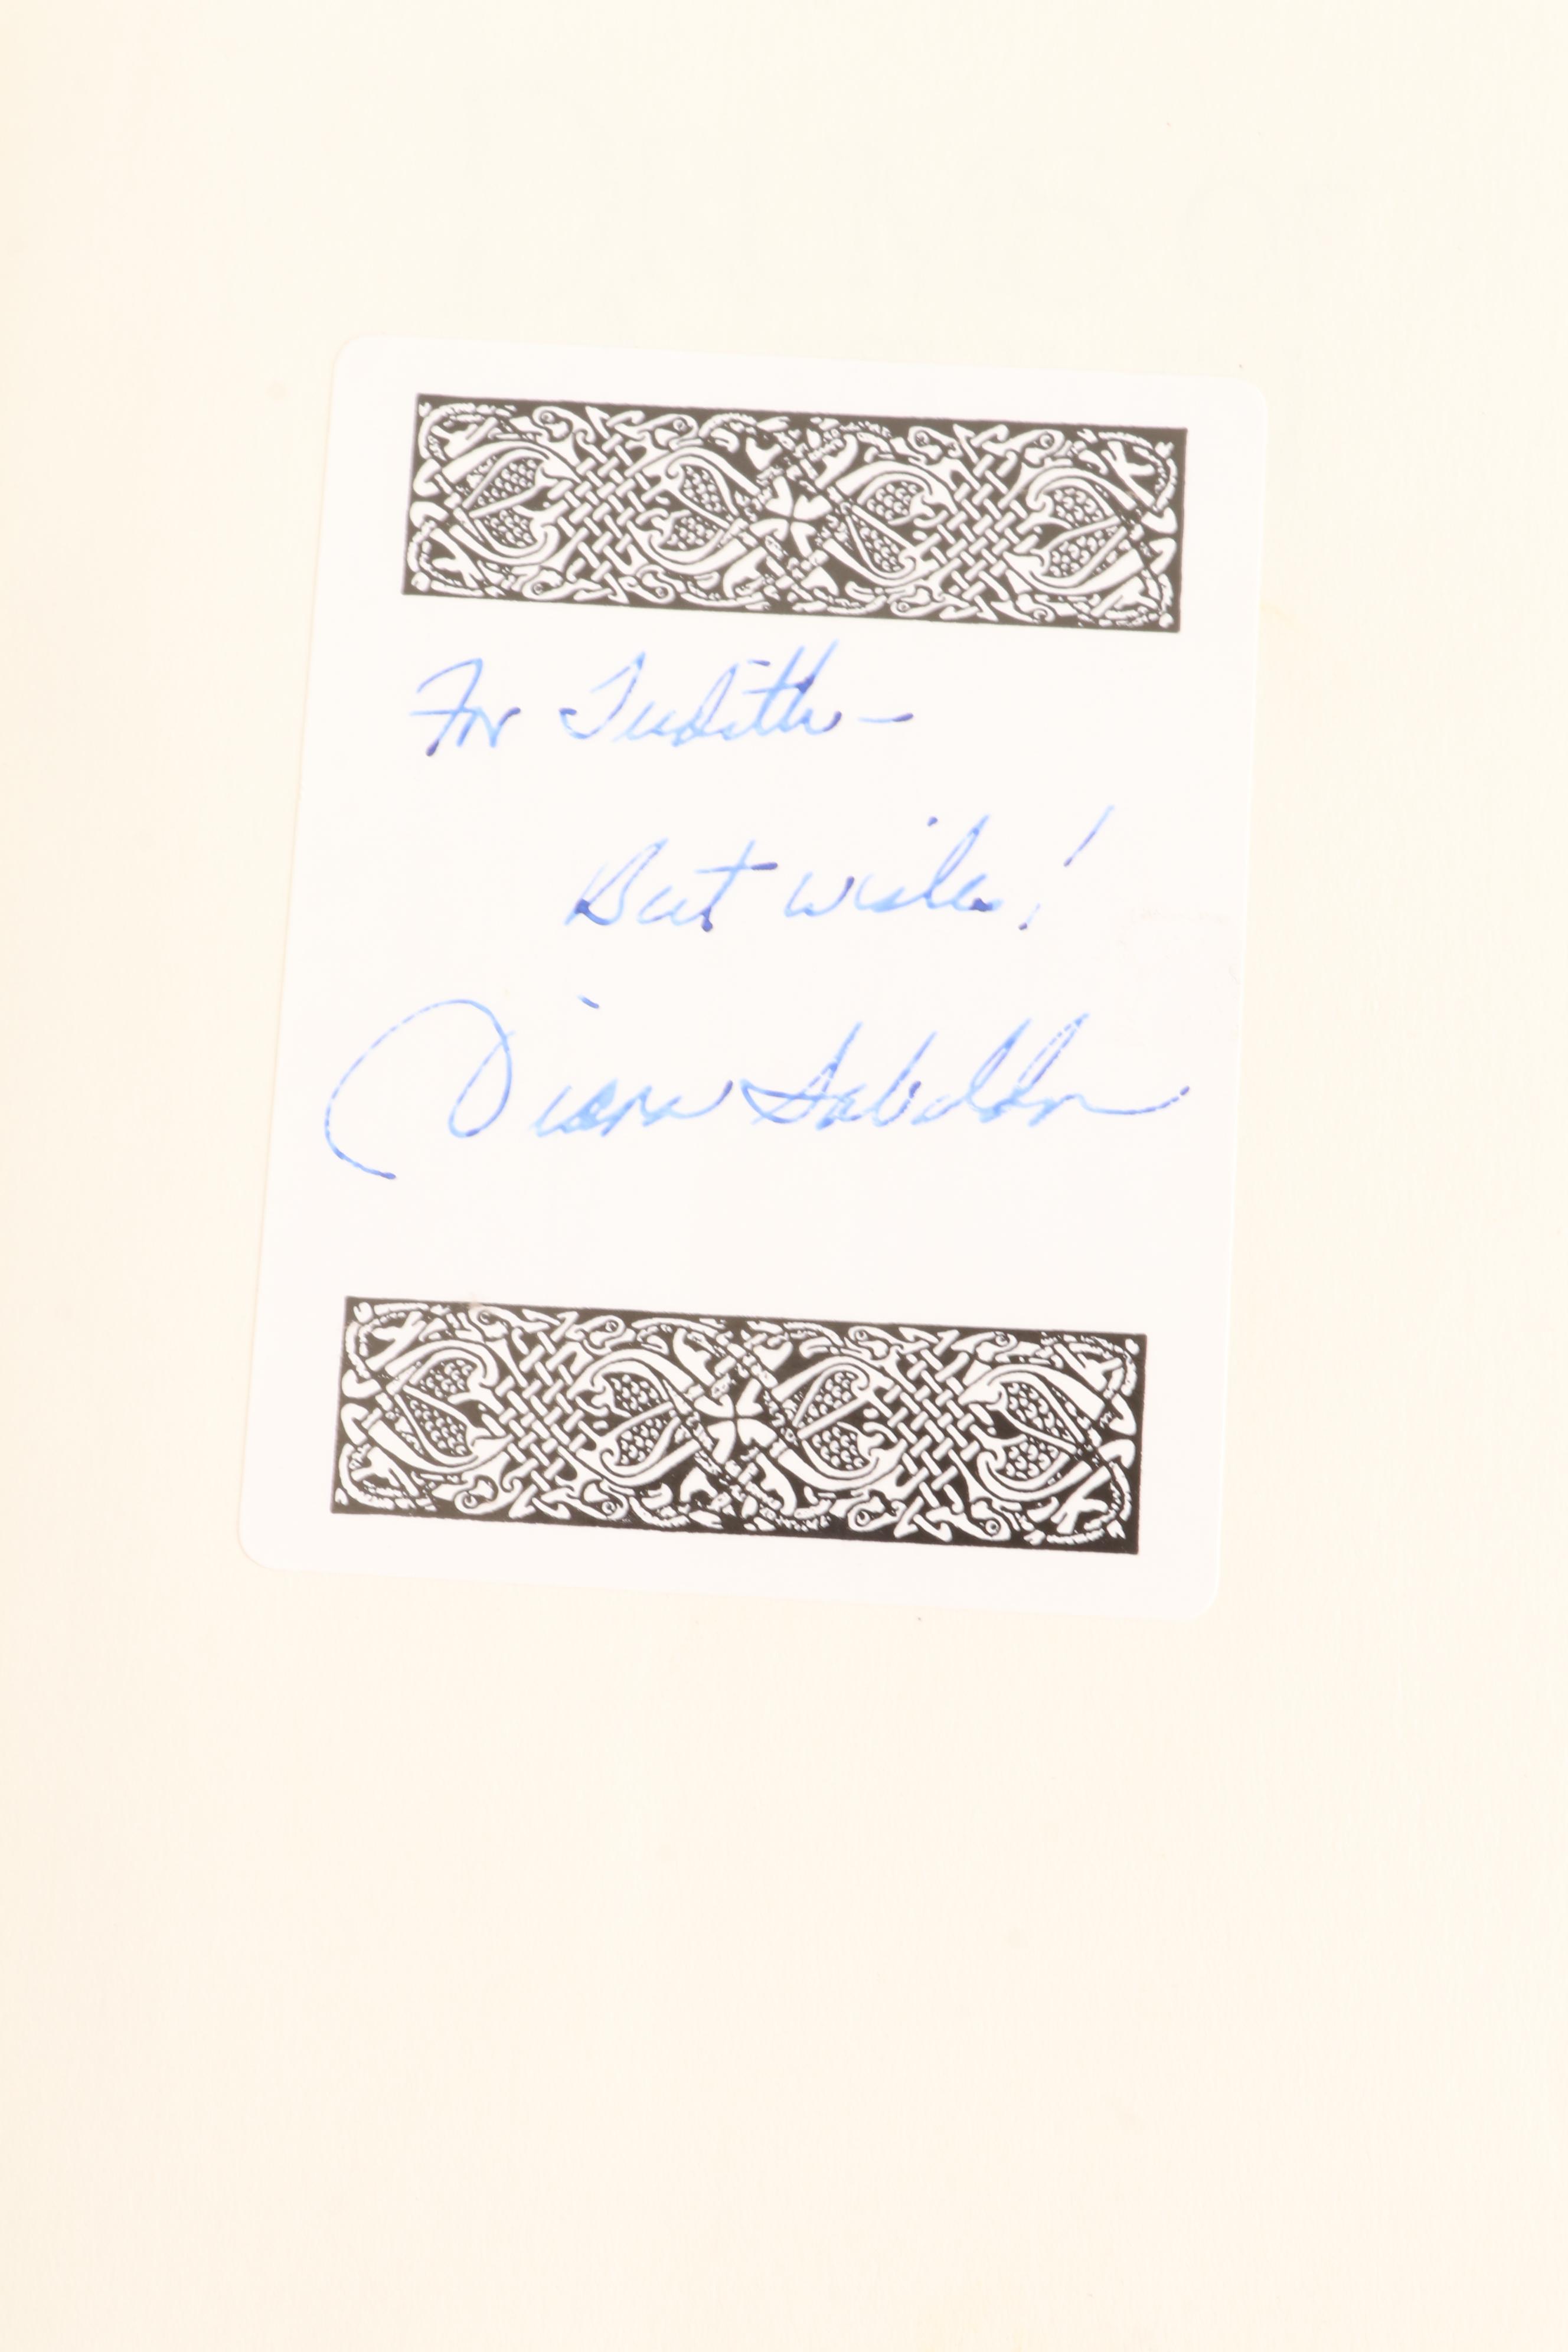 For Judith—
Best wishes!
Diana Gabaldon